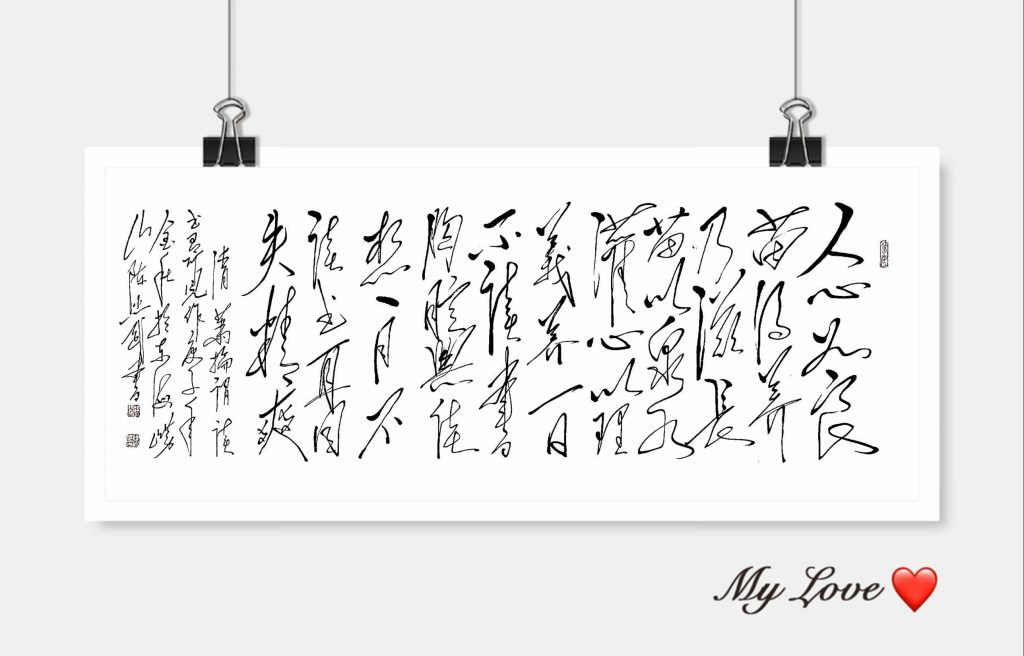 人心如良
苗得养
乃滋长
苗以泉水
灌心以理
義养一日
不读書
胸臆無佳
想一月不
读书耳目
失精爽
清萧抡谓读
书有所见作庚子年
金秋於东海崂
山陈書
My Love ❤️